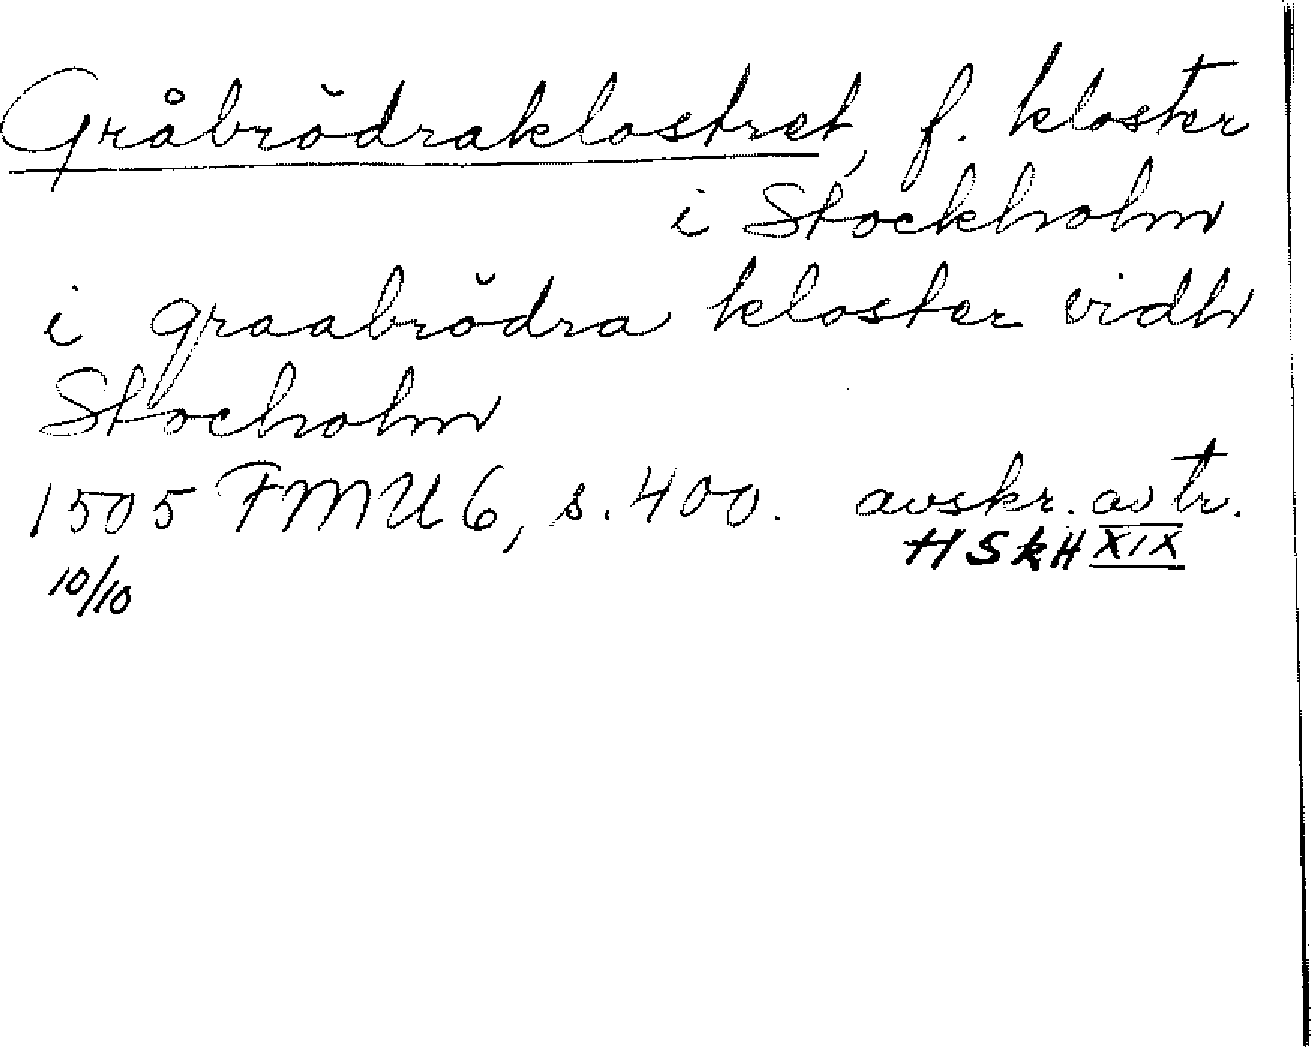 Gråbrödraklostret, f. kloster
i Stockholm
i graabrödra kloster vidh
Stocholm
1505 FMU 6, s. 400. avskr. av tr.
HSkH XIX
10/10